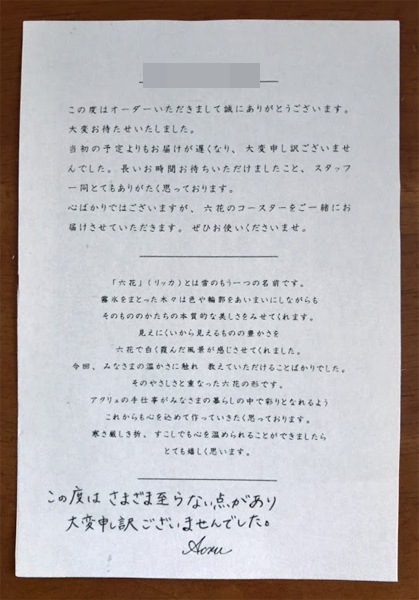 この度はオーダーいただきまして誠にありがとうございます。
大変お待たせいたしました。
当初の予定よりもお届けが遅くなり、大変申し訳ございませ
んでした。長いお時間お待ちいただけましたこと、スタッフ
一同とてもありがたく思っております。
心ばかりではございますが、六花のコースターをご一緒にお
届けさせていただきます。ぜひお使いくださいませ。
「六花」(リッカ)とは雪のもう一つの名前です。
霧氷をまとった木々は色や輪郭をあいまいにしながらも
そのもののかたちの本質的な美しさをみせてくれます。
見えにくいから見えるものの豊かさを
六花で白く霞んだ風景が感じさせてくれました。
今回、みなさまの温かさに触れ 教えていただけることばかりでした。
そのやさしさと重なった六花の形です。
アクリュの手仕事がみなさまの暮らしの中で彩りとなれるよう
これからも心を込めて作っていきたく思っております。
寒さ厳しき折、すこしでも心を温められることができましたら
とても嬉しく思います。
この度は さまざま至らない点があり
大変申し訳ございませんでした。